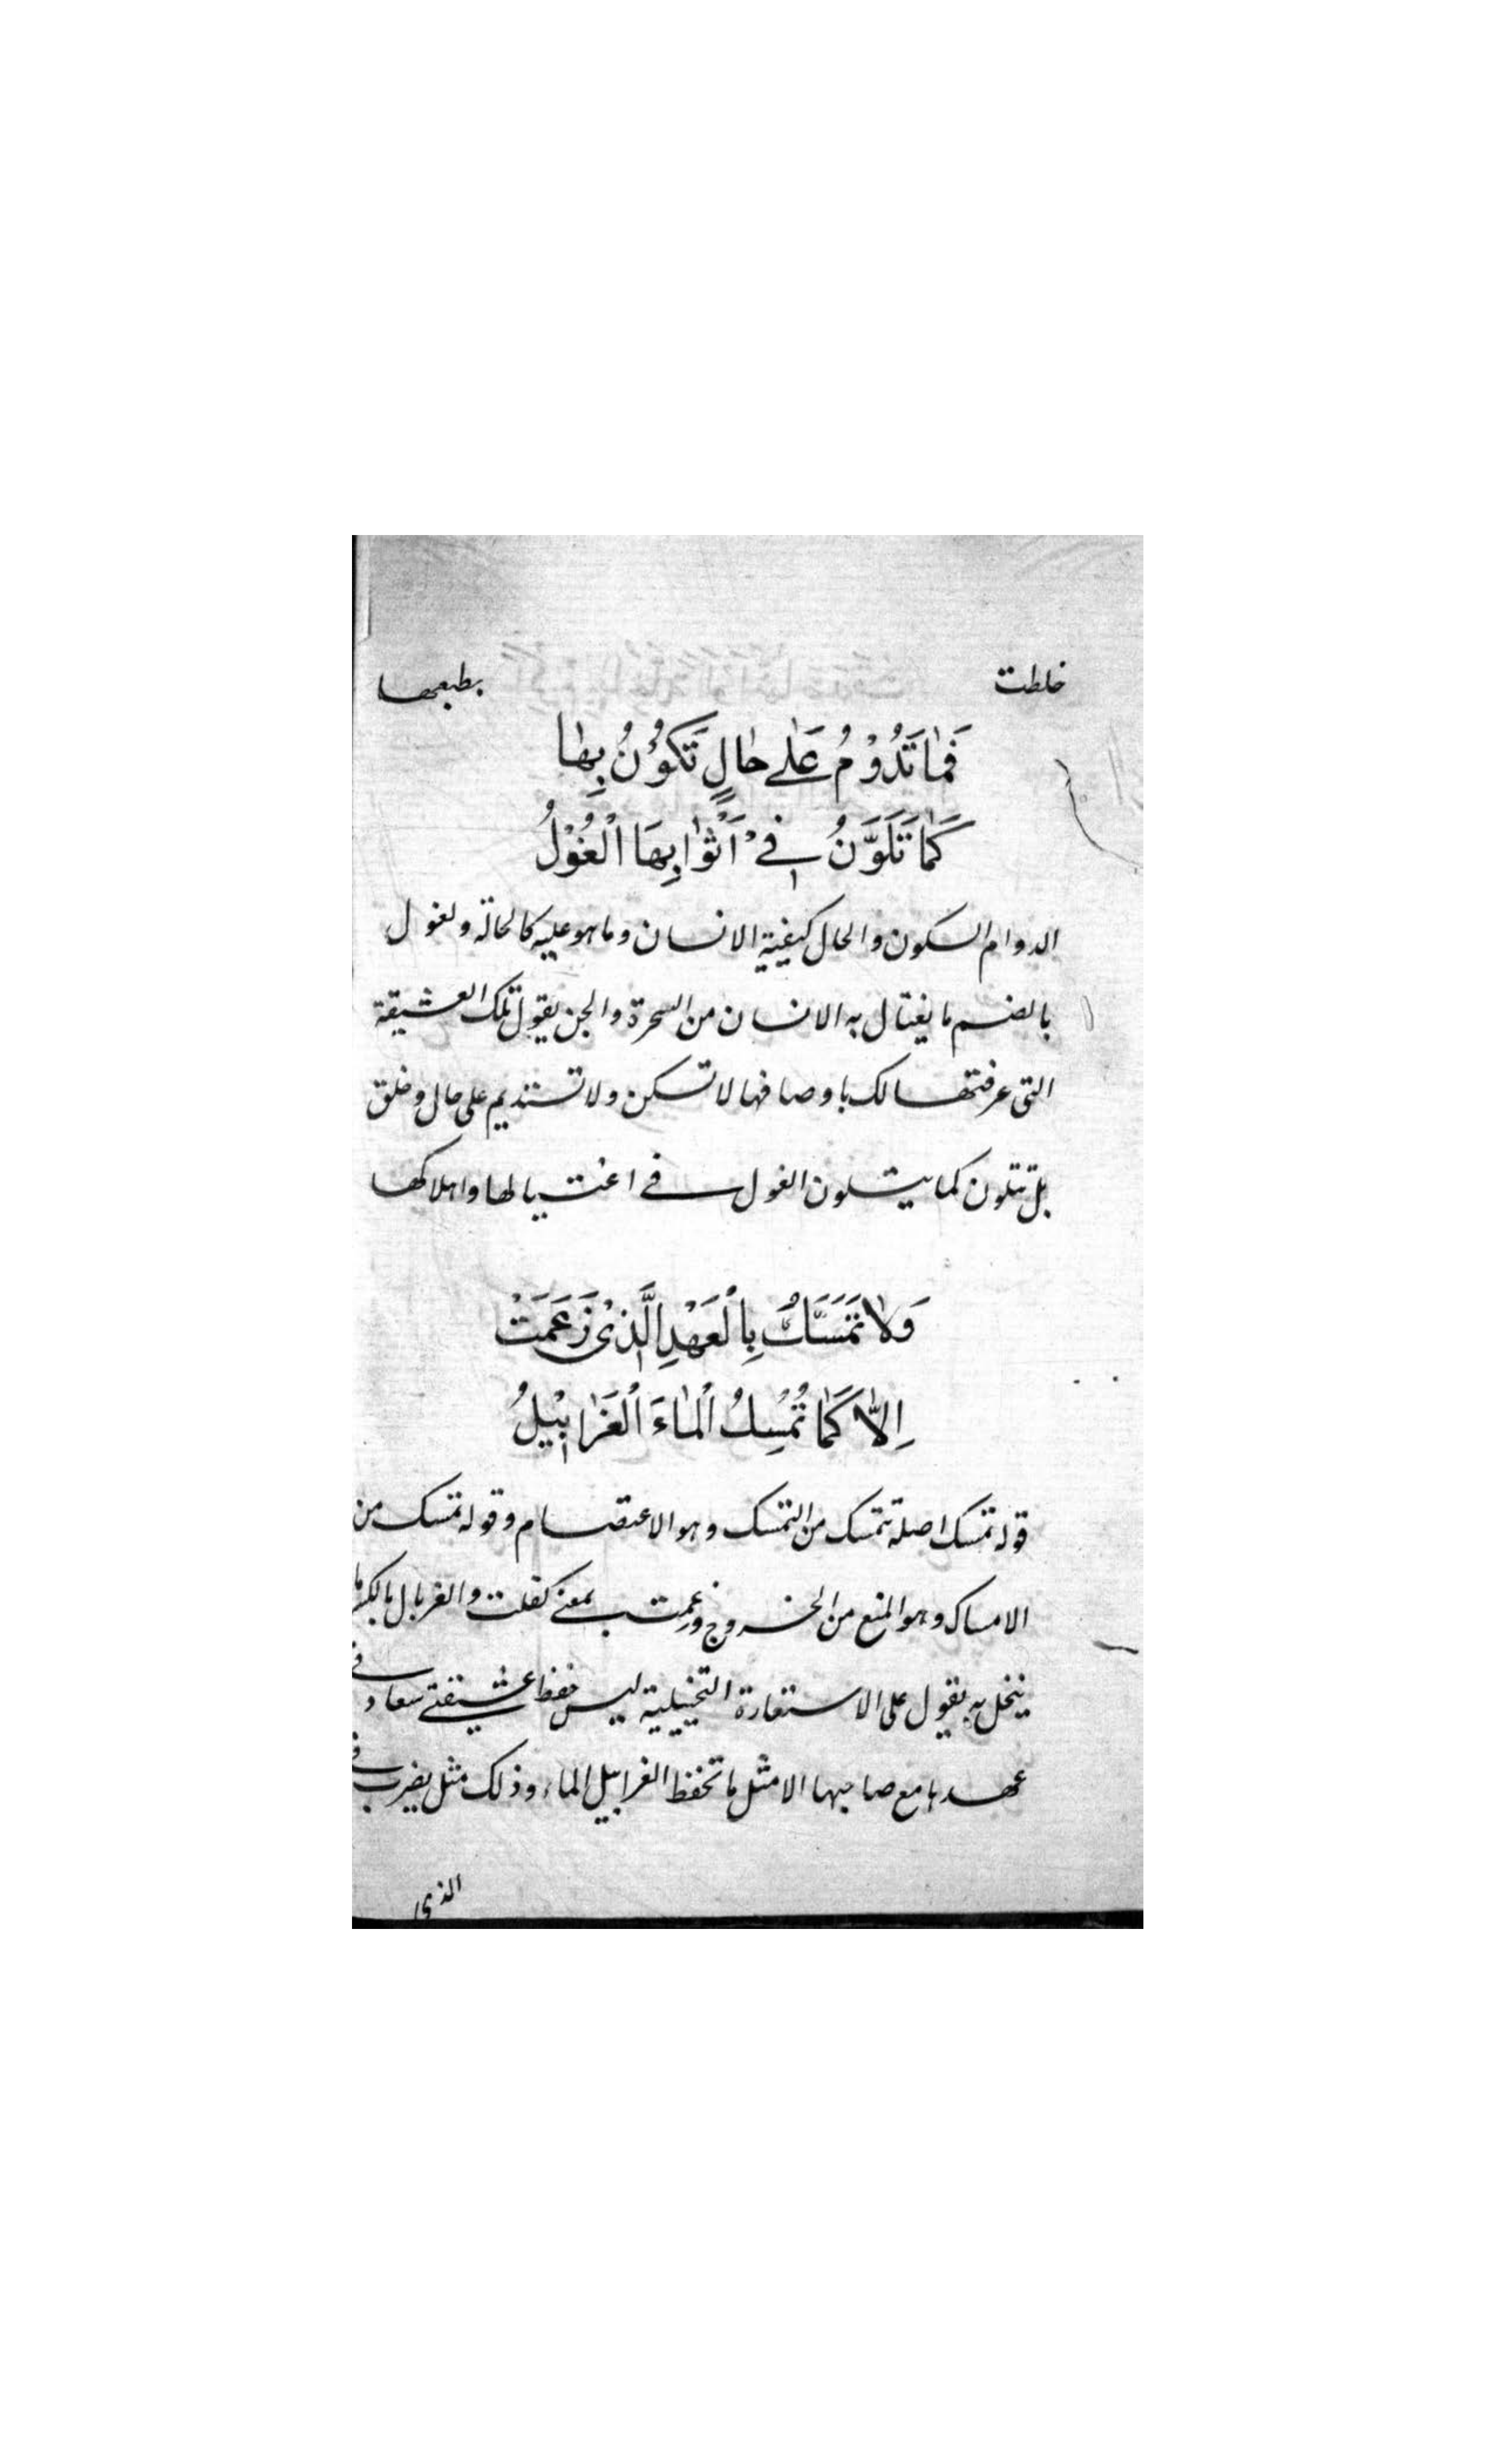 خلطت بطبعها
فَمٰا تَدُوْمُ عَلٰے حٰالٍ تَكُوْنُ بِهٰا
كَمٰا تَلَوَّنُ فِےْ اَثْوٰابِهَا الْغُوْلُ
الدوام السكون والحال كيفية الانسان وما هو عليه كالحالة ولغول
بالضم ما يغتال به الانسان من السحرة والجن يقول تلك العشيقة
التى عرفتها لك باوصافها لا تسكن ولا تستديم على حال وخلق
بل تتلون كما يتلون الغول فے اغتيالها واهلاكها
وَلٰا تَمَسَّكُ بِالْعَهْدِ الَّذِىْ زَعَمَتْ
اِلّٰا كَمٰا تُمْسِكُ الْمٰاءَ الْغَرٰابِيْلُ
قوله تمسك اصله تتمسك من التمسك وهو الاعتصام وقوله تمسك من
الامساك وهو المنع من الخروج وزعمت بمعنے كفلت والغربال بالكسر ما
ينخل به يقول على الاستعارة التخييلية ليس حفظ عشيقتے سعاد فے
عهدها مع صاحبها الا مثل ما تحفظ الغرابيل الماء وذلك مثل يضرب فے
الذى